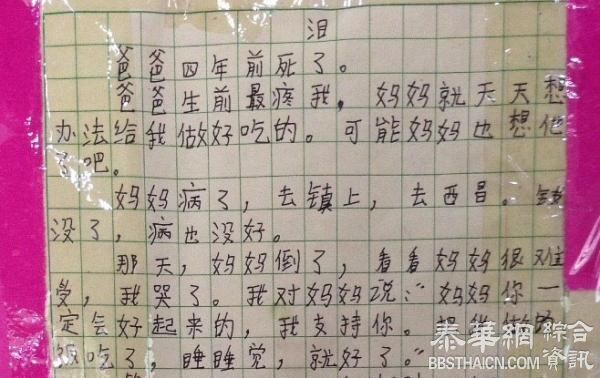 泪
爸爸四年前死了。
爸爸生前最疼我，妈妈就天天想
办法给我做好吃的。可能妈妈也想他
了吧。
妈妈病了，去镇上，去西昌。钱
没了，病也没好。
那天，妈妈倒了，看看妈妈很难
受，我哭了。我对妈妈说：“妈妈你一
定会好起来的，我支持你。把我做的
饭吃了，睡睡觉，就好了。”
泰華網 綜合資訊
BBSTHAICN.COM